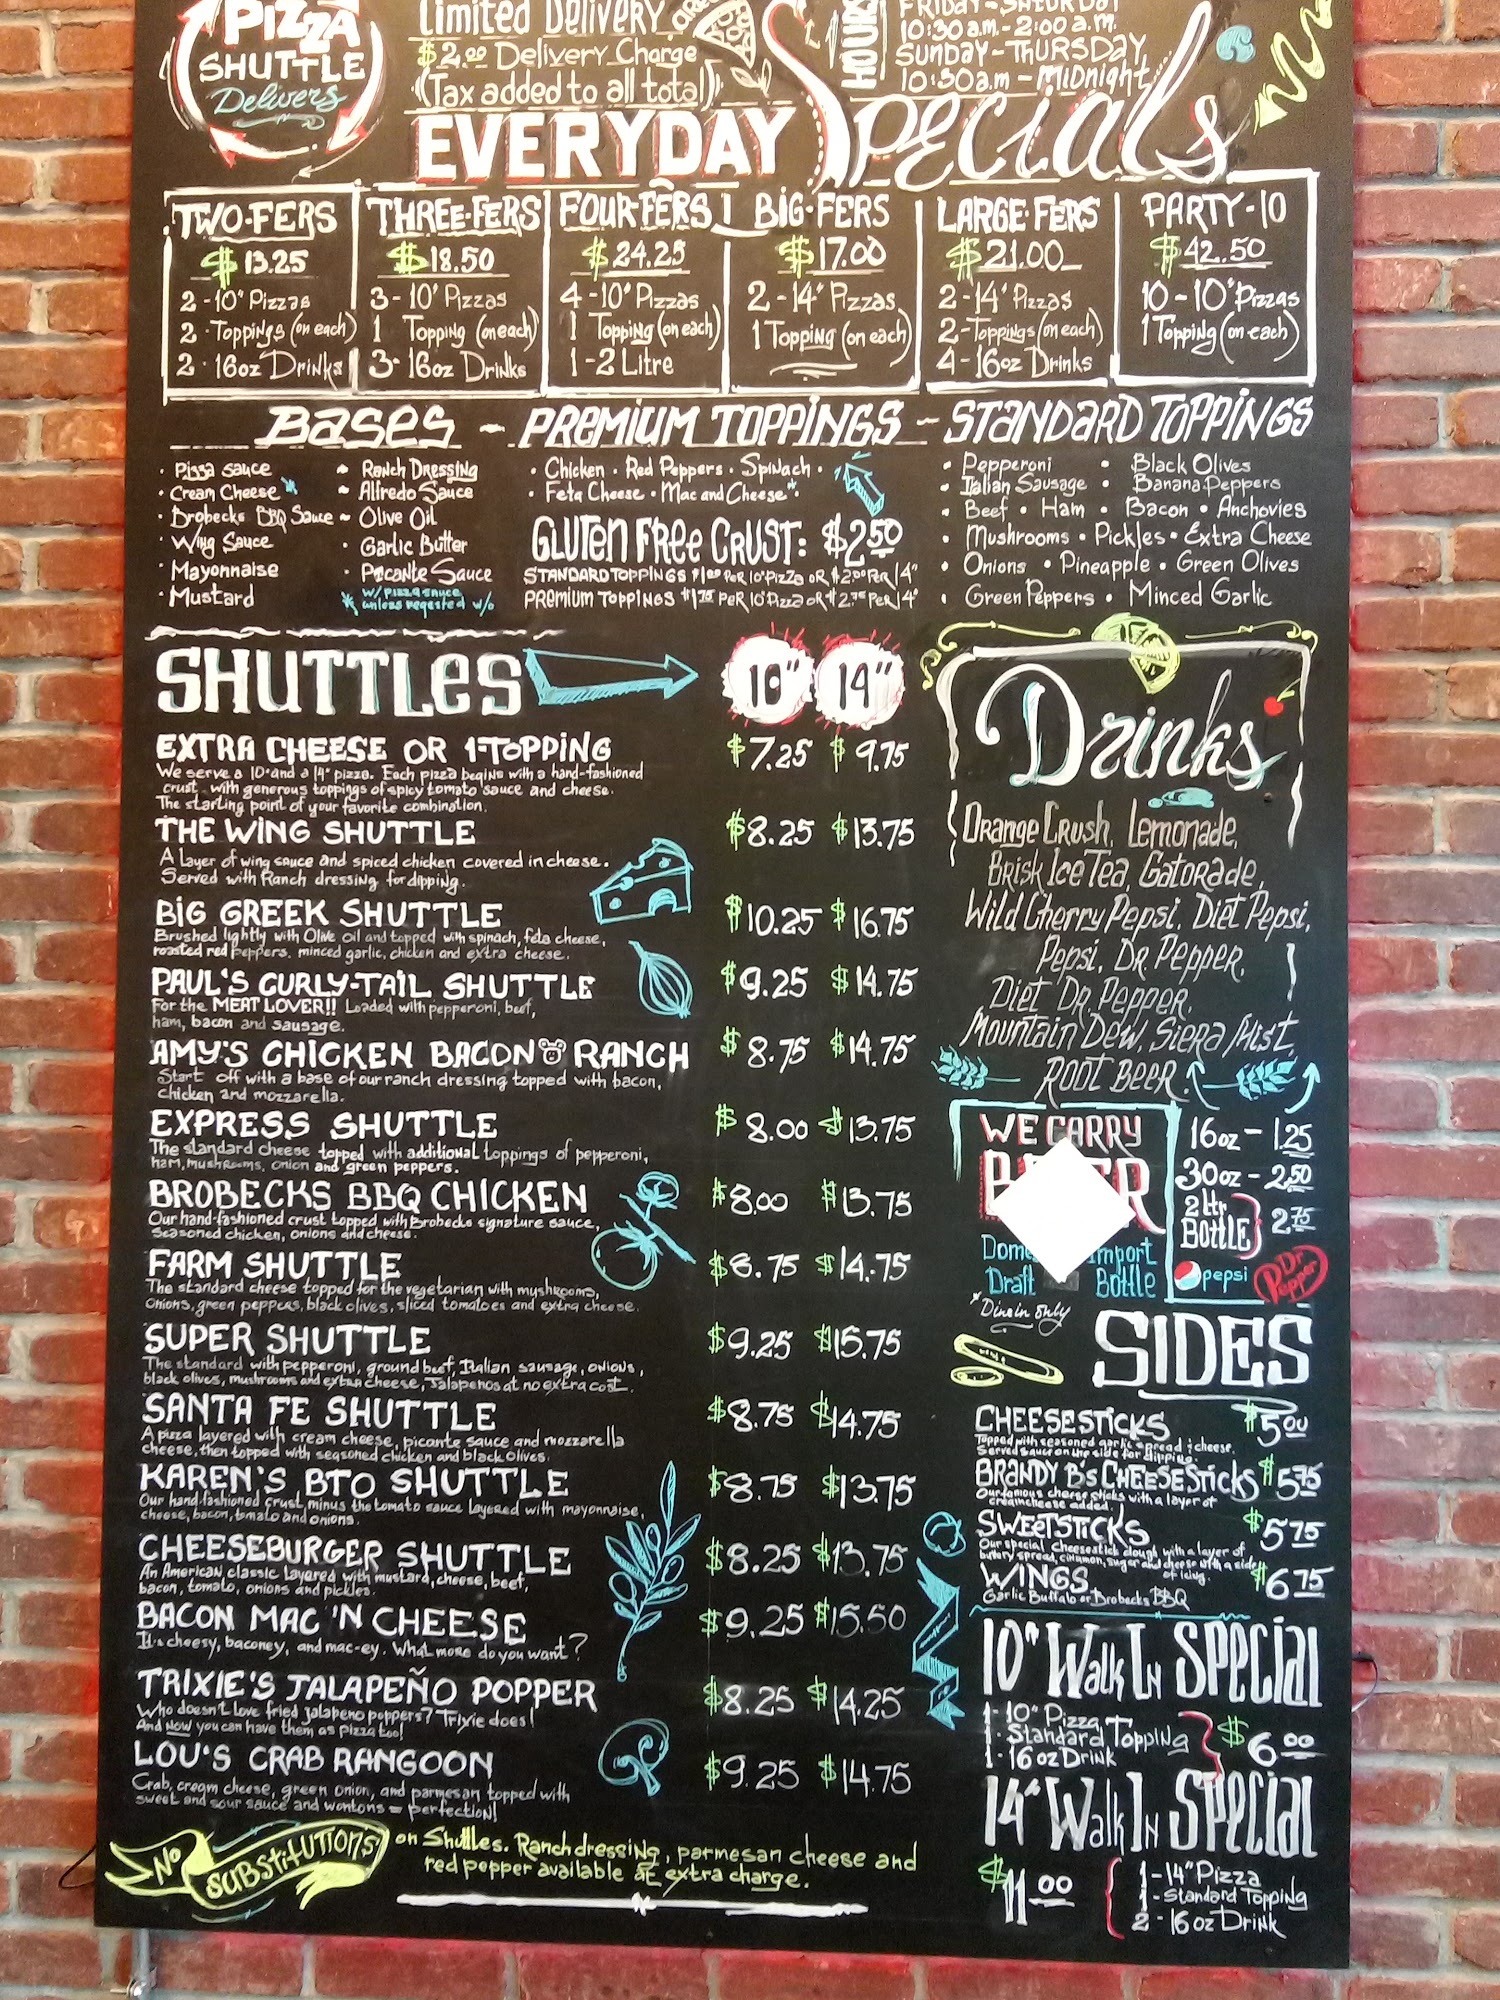 PIZZA
SHUTTLE
Delivers
Limited Delivery
$2.00 Delivery Charge
(Tax added to all total)
HOURS
FRIDAY-SATURDAY
10:30 a.m.-2:00 a.m.
SUNDAY-THURSDAY
10:30a.m-Midnight
EVERYDAY Specials
TWO-FERS
$13.25
2-10" Pizzas
2·Toppings (on each)
2·16oz Drinks
THREE-FERS
$18.50
3-10" Pizzas
1 Topping (on each)
3-16oz Drinks
FOUR-FERS
$24.25
4-10" Pizzas
1 Topping (on each)
1-2 Litre
BIG-FERS
$17.00
2-14" Pizzas
1 Topping (on each)
LARGE-FERS
$21.00
2-14" Pizzas
2-Toppings (on each)
4-16oz Drinks
PARTY-10
$42.50
10-10" Pizzas
1 Topping (on each)
BASES - PREMIUM TOPPINGS - STANDARD TOPPINGS
· Pizza Sauce
· Cream Cheese*
· Brobecks BBQ Sauce
· Wing Sauce
· Mayonnaise
· Mustard
~ Ranch Dressing
~ Alfredo Sauce
~ Olive Oil
· Garlic Butter
· Pacante Sauce
* w/ Pizza Sauce
unless requested w/o
· Chicken · Red Peppers · Spinach ·
· Feta Cheese · Mac and Cheese*·
GLUTEN FREE CRUST: $2.50
STANDARD TOPPINGS $1.00 PER 10" PIZZA OR $2.00 PER 14"
PREMIUM TOPPINGS $1.75 PER 10" PIZZA OR $2.75 PER 14"
· Pepperoni · Black Olives
· Italian Sausage · Banana Peppers
· Beef · Ham · Bacon · Anchovies
· Mushrooms · Pickles · Extra Cheese
· Onions · Pineapple · Green Olives
· Green Peppers · Minced Garlic
SHUTTLES 10" 14"
EXTRA CHEESE OR 1-TOPPING $7.25 $9.75
We serve a 10" and a 14" pizza. Each pizza begins with a hand-fashioned
crust, with generous toppings of spicy tomato sauce and cheese.
The starting point of your favorite combination.
THE WING SHUTTLE $8.25 $13.75
A Layer of wing sauce and spiced chicken covered in cheese.
Served with Ranch dressing for dipping.
BIG GREEK SHUTTLE $10.25 $16.75
Brushed lightly with Olive oil and topped with spinach, feta cheese,
roasted red peppers, minced garlic, chicken and extra cheese.
PAUL'S CURLY-TAIL SHUTTLE $9.25 $14.75
For the MEAT LOVER!! Loaded with pepperoni, beef,
ham, bacon and sausage.
AMY'S CHICKEN BACON RANCH $8.75 $14.75
Start off with a base of our ranch dressing topped with bacon,
chicken and mozzarella.
EXPRESS SHUTTLE $8.00 $13.75
The standard cheese topped with additional toppings of pepperoni,
ham, mushrooms, onion and green peppers.
BROBECKS BBQ CHICKEN $8.00 $13.75
Our hand-fashioned crust topped with Brobecks signature sauce,
Seasoned chicken, onions and cheese.
FARM SHUTTLE $8.75 $14.75
The standard cheese topped for the vegetarian with mushrooms,
Onions, green peppers, black olives, sliced tomatoes and extra cheese.
SUPER SHUTTLE $9.25 $15.75
The standard with pepperoni, ground beef, Italian sausage, onions,
black olives, mushrooms and extra cheese, Jalapenos at no extra cost.
SANTA FE SHUTTLE $8.75 $14.75
A pizza layered with cream cheese, picante sauce and mozzarella
cheese, then topped with seasoned chicken and black olives.
KAREN'S BTO SHUTTLE $8.75 $13.75
Our hand-fashioned crust, minus the tomato sauce layered with mayonnaise,
cheese, bacon, tomato and onions.
CHEESEBURGER SHUTTLE $8.25 $13.75
An American classic layered with mustard, cheese, beef,
bacon, tomato, onions and pickles.
BACON MAC 'N CHEESE $9.25 $15.50
It's cheesy, baconey, and mac-ey. What more do you want?
TRIXIE'S JALAPEÑO POPPER $8.25 $14.25
Who doesn't love fried jalapeno poppers? Trixie does!
And now you can have them as pizza too!
LOU'S CRAB RANGOON $9.25 $14.75
Crab, cream cheese, green onion, and parmesan topped with
sweet and sour sauce and wontons = perfection!
No SUBSTITUTIONS on Shuttles. Ranch dressing, parmesan cheese and
red pepper available at extra charge.
Drinks
Orange Crush, Lemonade,
Brisk Ice Tea, Gatorade,
Wild Cherry Pepsi, Diet Pepsi,
Pepsi, Dr. Pepper,
Diet Dr. Pepper,
Mountain Dew, Siera Mist,
ROOT BEER
WE CARRY
Draft
Import
Bottle
*Dine in only
16oz - 1.25
30oz - 2.50
2 Ltr
BOTTLE } 2.75
pepsi
Dr Pepper
SIDES
CHEESESTICKS $5.00
Topped with seasoned garlic spread & cheese.
Served sauce on the side for dipping.
BRANDY B'S CHEESESTICKS $5.75
Our famous cheese sticks with a layer of
creamcheese added.
SWEETSTICKS $5.75
Our special cheesestick dough with a layer of
butery spread, cinnamon, sugar and cheese with a side
of icing.
WINGS $6.75
Garlic Buffalo or Brobecks BBQ
10" Walk In Special
1-10" Pizza
1·Standard Topping
1-16oz Drink
$6.00
14" Walk In Special
$11.00
1-14" Pizza
1-Standard Topping
2-16oz Drink